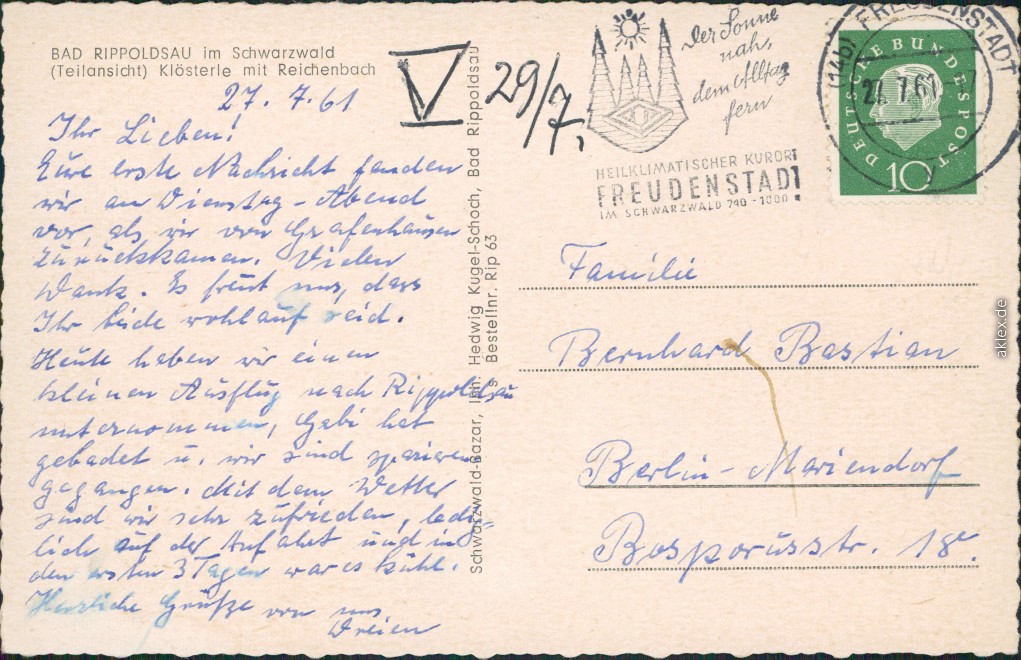 BAD RIPPOLDSAU im Schwarzwald
(Teilansicht) Klösterle mit Reichenbach
27. 7. 61
Ihr Lieben!
Eure erste Nachricht fanden
wir am Dienstag-Abend
vor, als wir von Grafenhausen
zurückkamen. Vielen
Dank. Es freut uns, dass
Ihr beide wohlauf seid.
Heute haben wir einen
kleinen Ausflug nach Rippoldsau
unternommen, Gabi hat
gebadet u. wir sind spazieren
gegangen. Mit dem Wetter
sind wir sehr zufrieden, ledig-
lich auf der Anfahrt und in
den ersten 3 Tagen war es kühl.
Herzliche Grüße von uns
Dreien
V
29/7.
Schwarzwald-Bazar, Inh. Hedwig Kugel-Schoch, Bad Rippoldsau
Bestellnr. Rip 63
Der Sonne
nah,
dem Alltag
fern
HEILKLIMATISCHER KURORT
FREUDENSTADT
IM SCHWARZWALD 740-1000
(14b) FREUDENSTADT
DEUTSCHE BUNDESPOST
10
Familie
Bernhard Bastian
Berlin-Mariendorf
Bosporusstr. 18
aklex.de